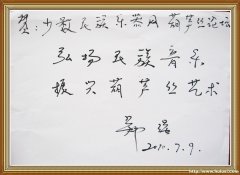 贺：少数民族乐器网葫芦丝论坛
弘扬民族音乐
振兴葫芦丝艺术
2010.7.9.